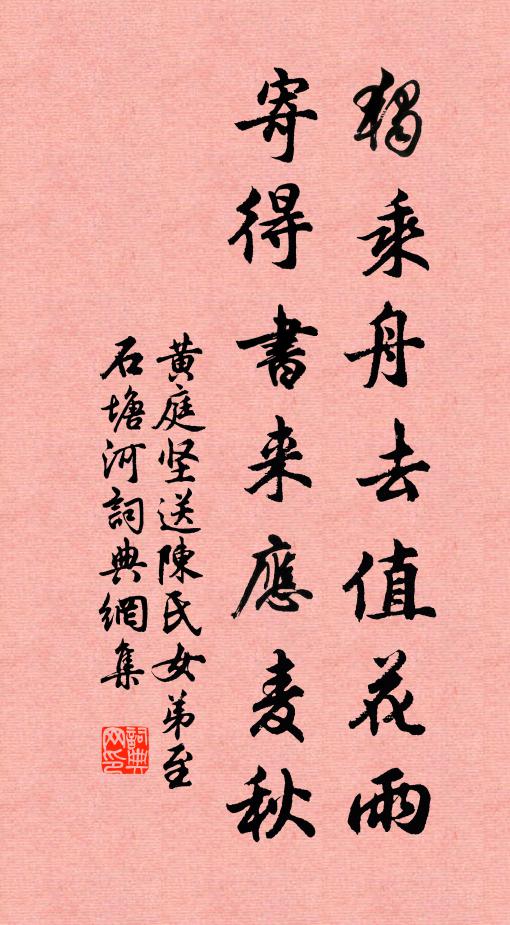 獨乘舟去值花雨
寄得書来應麦秋
黄庭坚送陳氏女弟至
石塘河詞典網集
詞典网印